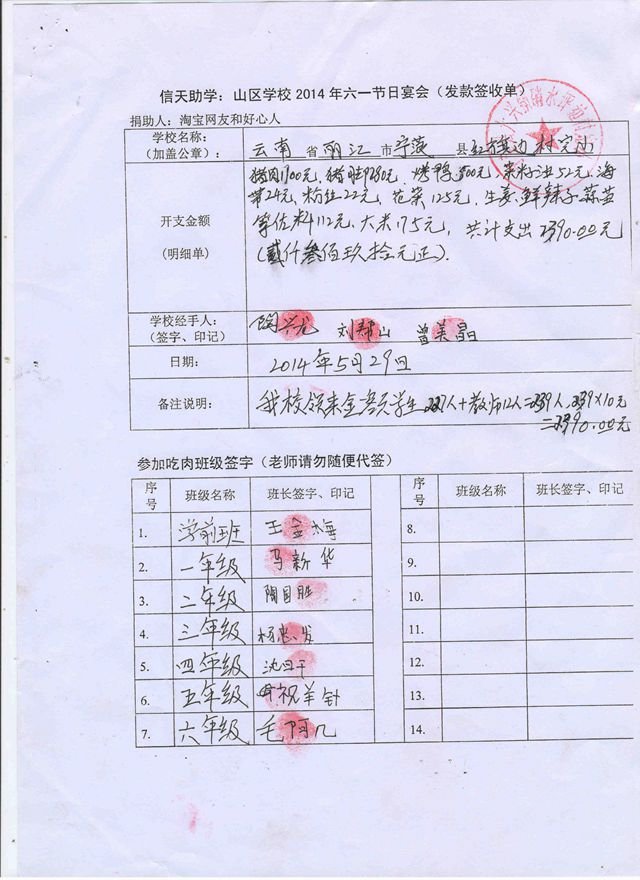 信天助学：山区学校2014年六一节日宴会（发款签收单）
捐助人：淘宝网友和好心人
学校名称：
（加盖公章）：
云南省丽江市宁蒗县红旗边村完小
开支金额
(明细单)
猪肉1100元、猪肚9280元、烤鸭500元、菜籽油52元、海
带24元、粉丝22元、花菜125元、生姜、鲜辣子、蒜苗
等佐料112元、大米175元，共计支出2390.00元
(贰仟叁佰玖拾元正).
学校经手人：
（签字、印记）
陶兴龙 刘帮山 曾美晶
日期：
2014年5月29日
备注说明：
我校领来金额学生227人+教师12人=239人，239×10元
=2390.00元
参加吃肉班级签字（老师请勿随便代签）
序号 班级名称 班长签字、印记 序号 班级名称 班长签字、印记
1. 学前班 王金梅 8.
2. 一年级 马新华 9.
3. 二年级 陶国胜 10.
4. 三年级 杨忠发 11.
5. 四年级 沈日干 12.
6. 五年级 祝羊针 13.
7. 六年级 毛阿几 14.